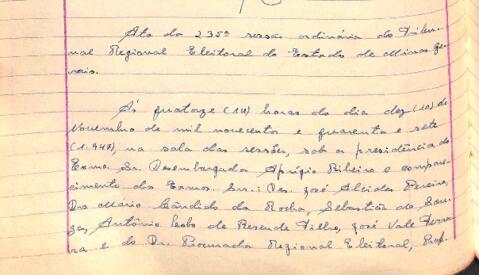 Ata da 235ª sessão ordinária do Tribu-
nal Regional Eleitoral do Estado de Minas Ge-
rais.
Às quatorze (14) horas do dia dez (10) de
Novembro de mil novecentos e quarenta e sete
(1.947), na sala das sessões, sob a presidência do
Exmo. Sr. Desembargador Aprígio Ribeiro e compare-
cimento dos Exmos. Srs.: Des. José Alcides Pereira,
Drs Mário Cândido da Rocha, Sebastião de Sou-
za, Antônio Lobo de Resende Filho, José Vale Ferrei-
ra e do Dr. Procurador Regional Eleitoral, Prof.